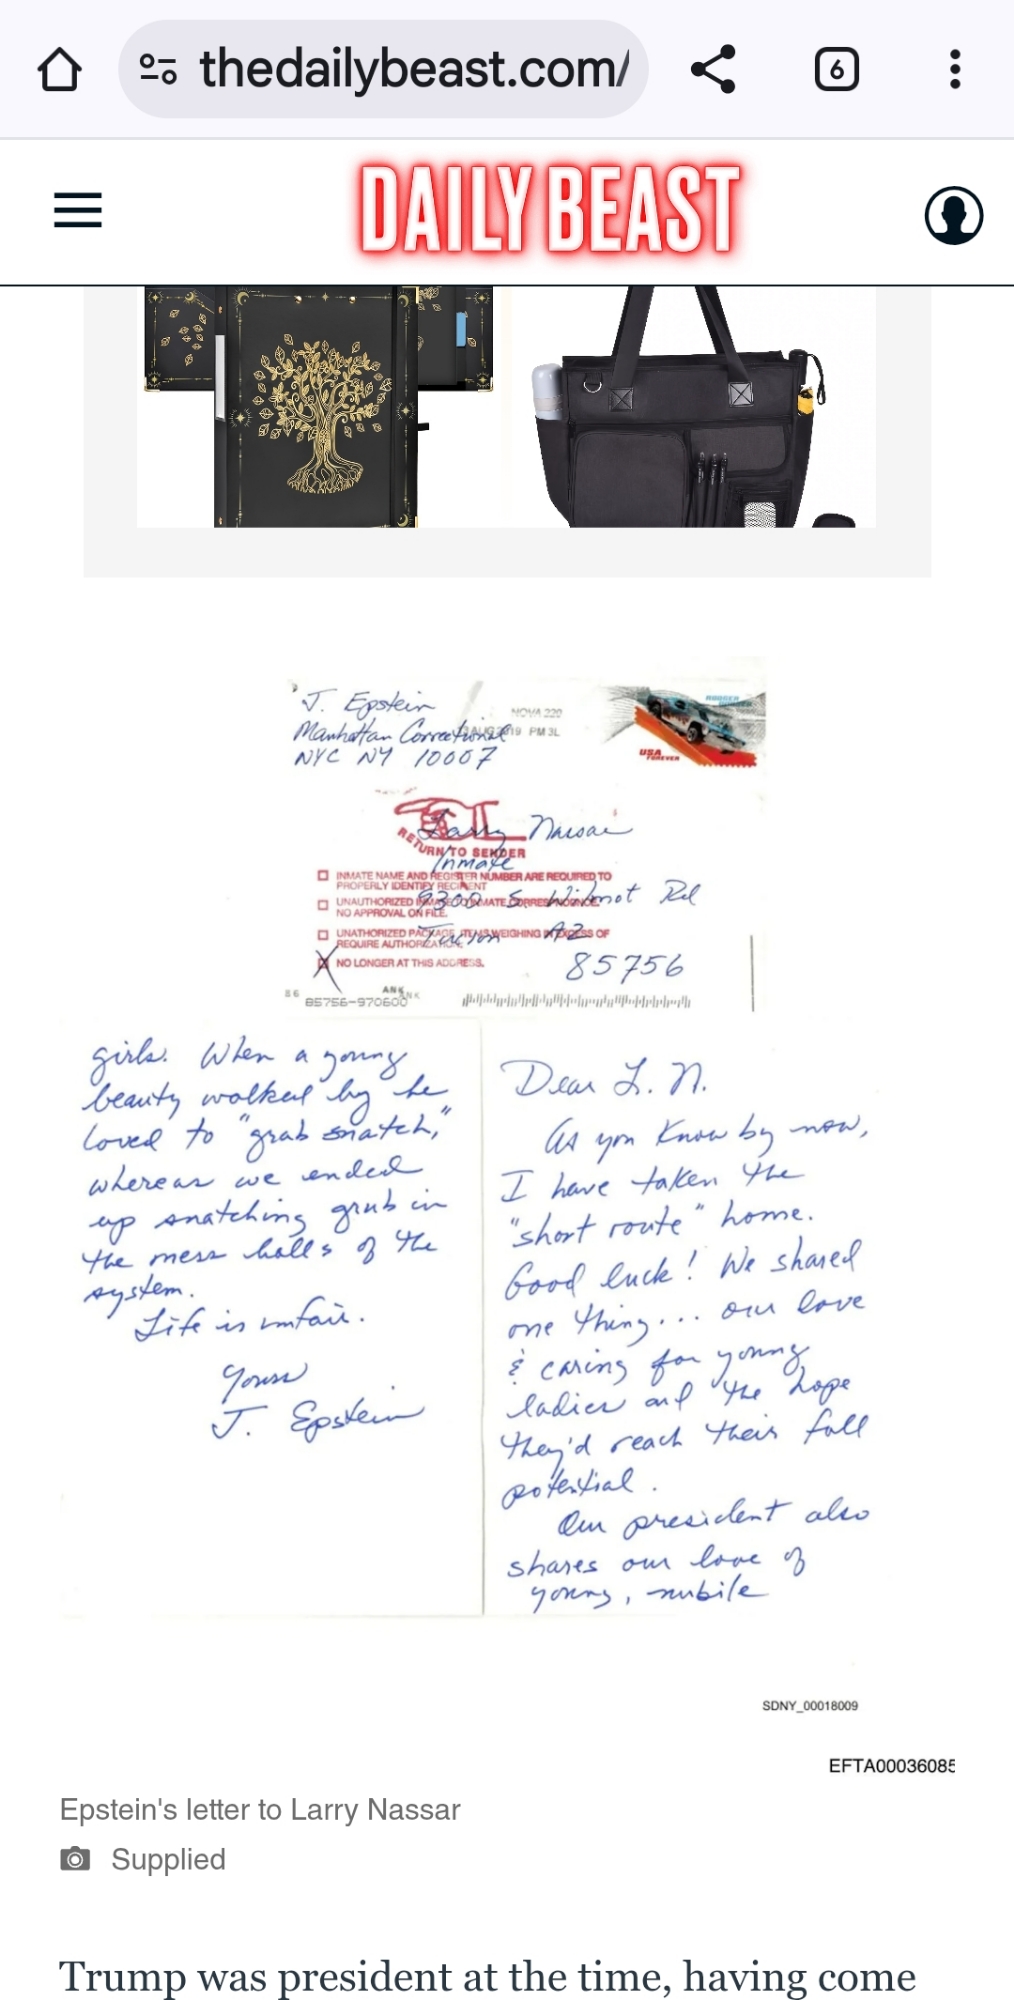 thedailybeast.com/
6
DAILY BEAST
J. Epstein
Manhattan Correctional
NYC NY 10007
NOVA 220
AUG 2019 PM 3L
USA
FOREVER
Larry Nassar
RETURN TO SENDER
Inmate
INMATE NAME AND REGISTER NUMBER ARE REQUIRED TO
PROPERLY IDENTIFY RECIPIENT
9300 S. Wilmot Rd
UNAUTHORIZED INMATE TO INMATE CORRESPONDENCE.
NO APPROVAL ON FILE.
Tucson AZ
UNATHORIZED PACKAGE ITEMS WEIGHING IN EXCESS OF
REQUIRE AUTHORIZATION.
NO LONGER AT THIS ADDRESS.
85756
ANK
85756-970600
girls. When a young
beauty walked by he
loved to "grab snatch,"
whereas we ended
up snatching grub in
the mess halls of the
system.
Life is unfair.
Yours
J. Epstein
Dear L. N.
As you know by now,
I have taken the
"short route" home.
Good luck! We shared
one thing... our love
& caring for young
ladies and the hope
they'd reach their full
potential.
Our president also
shares our love of
young, nubile
SDNY_00018009
EFTA00036085
Epstein's letter to Larry Nassar
Supplied
Trump was president at the time, having come